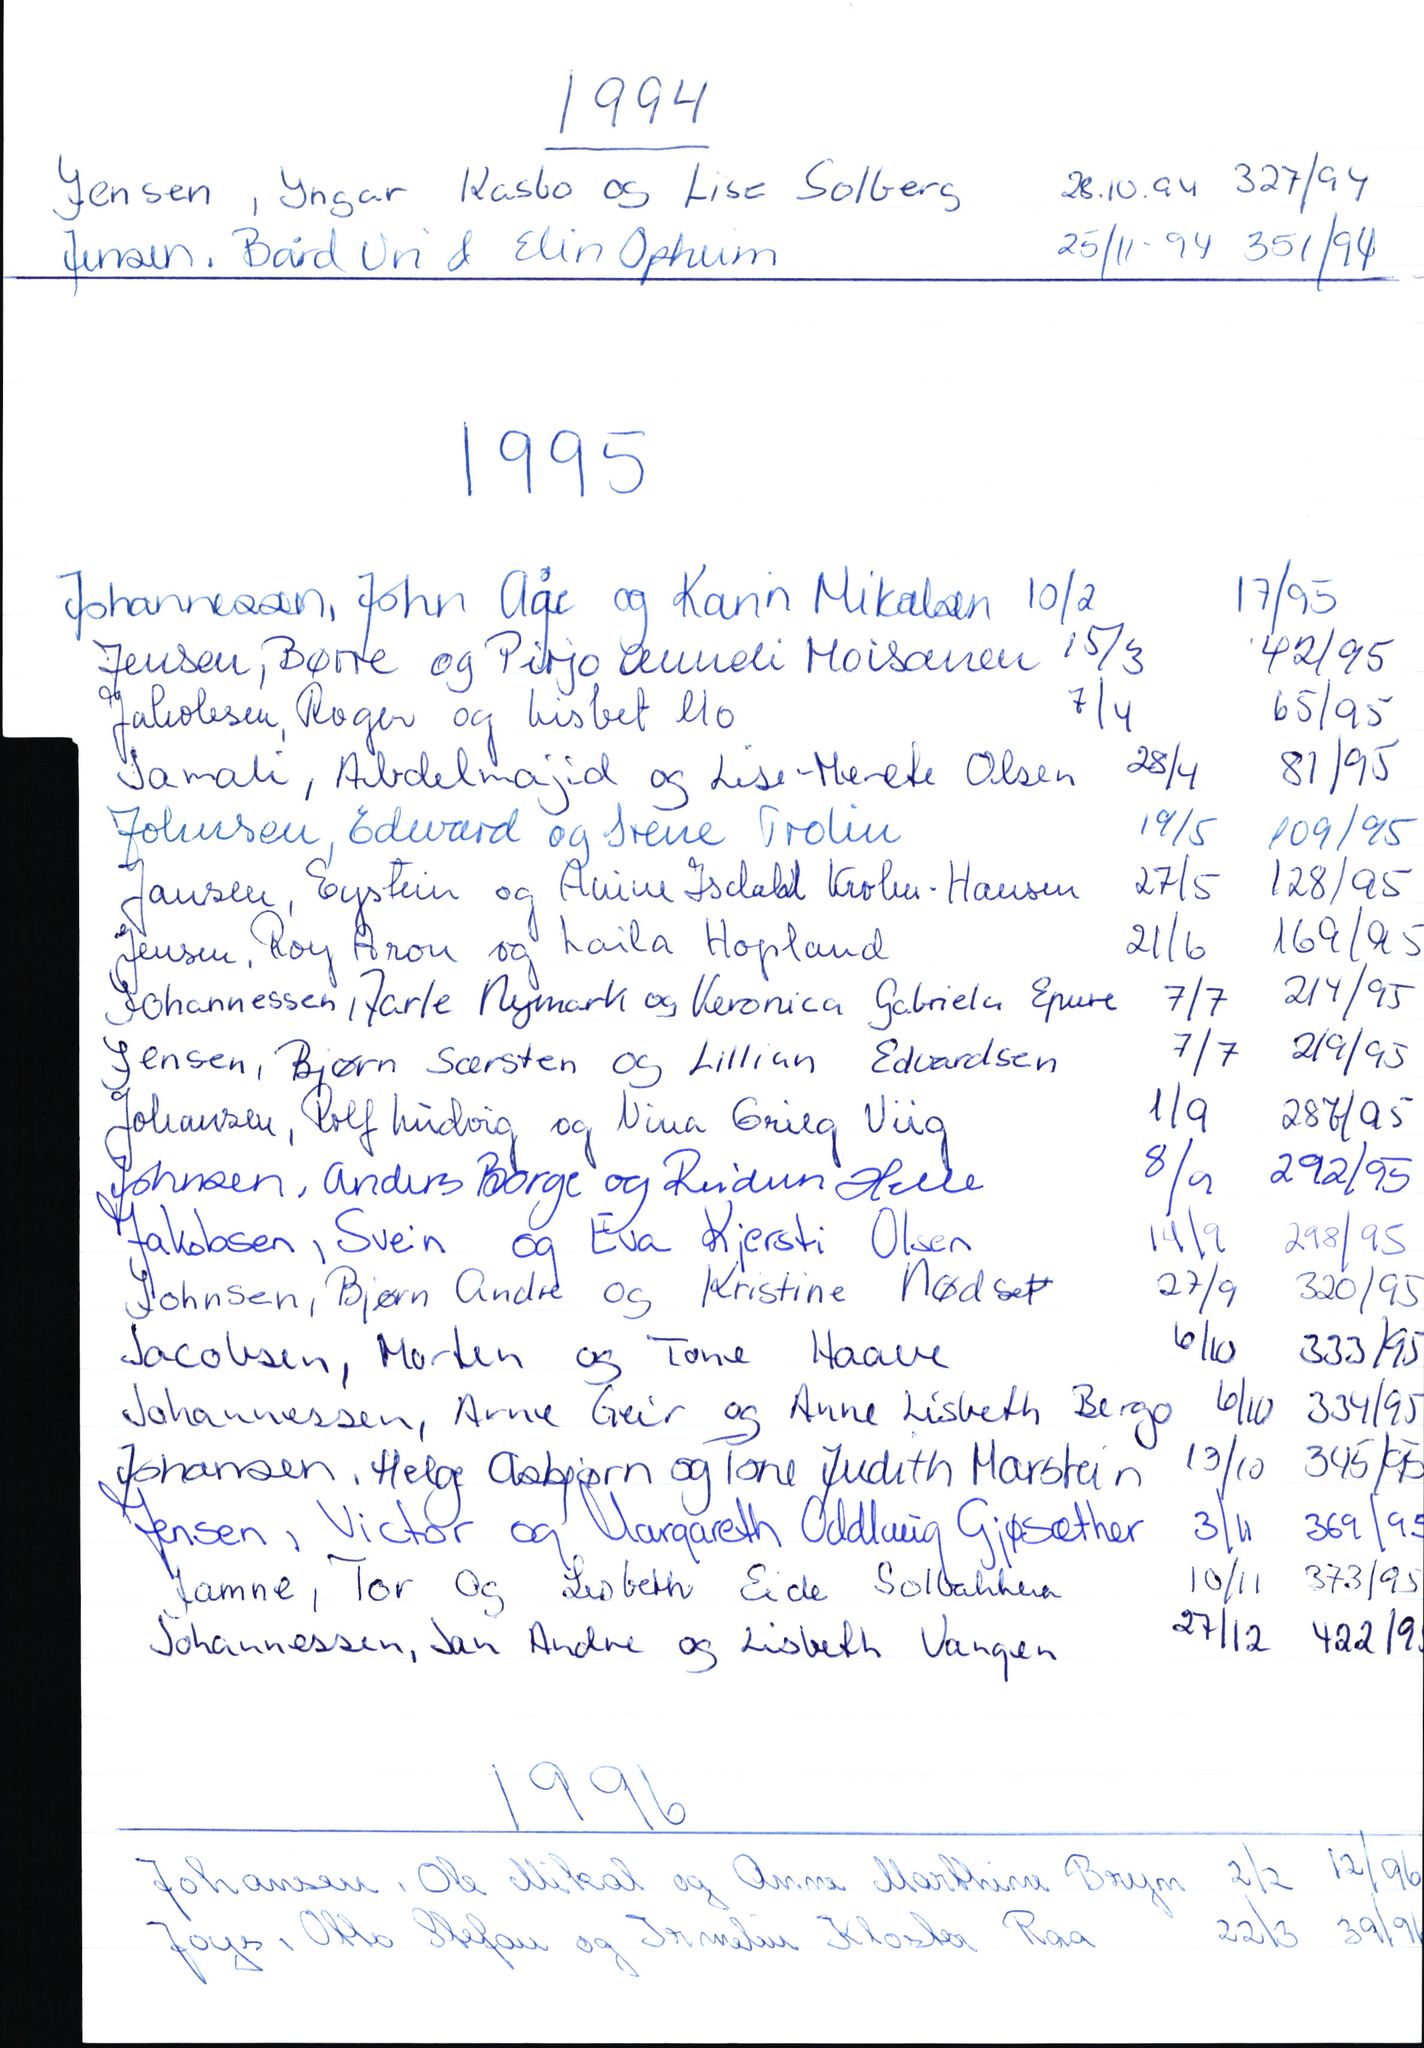 1994
Jensen, Yngar Kasbo og Lise Solberg 28.10.94 327/94
Jensen, Bård Uri & Elin Opheim 25/11-94 351/94
1995
Johannessen, John Åge og Karin Mikalsen 10/2 17/95
Jensen, Børre og Pirjo Moisanen 15/3 42/95
Jakobsen, Roger og Lisbet Mo 7/4 65/95
Jamali, Abdelmajid og Lise-Merete Olsen 28/4 81/95
Johnsen, Edward og Irene Trolin 19/5 109/95
Jansen, Eystein og Anine Isdahl Krohn-Hansen 27/5 128/95
Jensen, Roy Aron og Laila Hopland 21/6 169/95
Johannessen, Jarle Nymark og Veronica Gabriela Epure 7/7 214/95
Jensen, Bjørn Sørsten og Lillian Edvardsen 7/7 219/95
Johansen, Rolf Ludvig og Nina Grieg Viig 1/9 287/95
Johnsen, Anders Børge og Reidun Helle 8/9 292/95
Jakobsen, Svein og Eva Kjersti Olsen 14/9 298/95
Johnsen, Bjørn Andre og Kristine Nødset 27/9 320/95
Jacobsen, Morten og Tone Haave 6/10 333/95
Johannessen, Arne Geir og Anne Lisbeth Bergo 6/10 334/95
Johansen, Helge Asbjørn og Tone Judith Marstein 13/10 345/95
Jensen, Victor og Margareth Oddlaug Gjøsæther 3/11 369/95
Jamne, Tor Og Lisbeth Eide Solbakken 10/11 373/95
Johannessen, Jan Andre og Lisbeth Vangen 27/12 422/9
1996
Johansen, Ole Mikal og Anna Marthina Bryn 2/2 12/96
Joys, Otto Stefan og Irmelin Kloster Raa 22/3 39/96